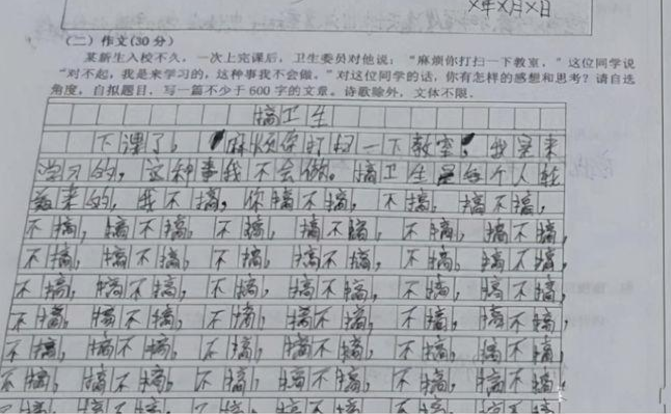 ×年×月×日
（二）作文(30分)
某新生入校不久，一次上完课后，卫生委员对他说：“麻烦你打扫一下教室，”这位同学说
“对不起，我是来学习的，这种事我不会做。”对这位同学的话，你有怎样的感想和思考？请自选
角度，自拟题目，写一篇不少于600字的文章。诗歌除外，文体不限．
搞卫生
下课了。麻烦你打扫一下教室！我是来
学习的，这种事我不会做。搞卫生是每个人
来的，我不搞，你搞不搞，不搞，搞不搞，
不搞，搞不搞，不搞，搞不搞，不搞，搞不搞，
不搞，搞不搞，不搞，搞不搞，不搞，搞不搞，
不搞，搞不搞，不搞，搞不搞，不搞，搞不搞，
不搞，搞不搞，不搞，搞不搞，不搞，搞不搞，
不搞，搞不搞，不搞，搞不搞，不搞，搞不搞，
不搞，搞不搞，不搞，搞不搞，不搞，搞不搞，